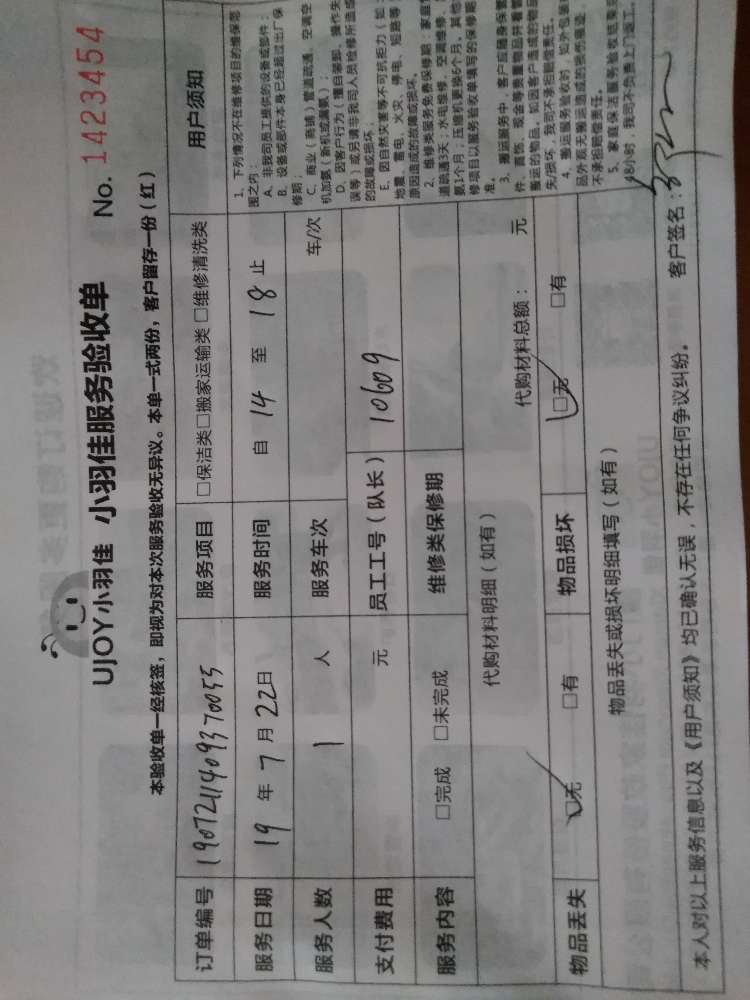 UJOY小羽佳 小羽佳服务验收单 No. 1423454
本验收单一经核签，即视为对本次服务验收无异议。本单一式两份，客户留存一份（红）
订单编号 1907211409370055 服务项目 □保洁类 □搬家运输类 □维修清洗类
服务日期 19 年 7 月 22 日 服务时间 自 14 至 18 止
服务人数 1 人 服务车次 车/次
支付费用 元 员工工号（队长） 10609
服务内容 □完成 □未完成 维修类保修期
代购材料明细（如有） 代购材料总额： 元
物品丢失 □无 □有 物品损坏 □无 □有
物品丢失或损坏明细填写（如有）
本人对以上服务信息以及《用户须知》均已确认无误，不存在任何争议纠纷。 客户签名：
用户须知
1、下列情况不在维修项目的维保范
围之内：
A、非我司员工提供的设备或部件；
B、设备或部件本身已经超过出厂保
修期；
C、商业（商铺）管道疏通、空调空
机加氨（新机或漏氨）；
D、因客户行为（擅自塞卸、操作失
误等）或另请非我司人员检修所造成
的故障或损坏；
E、因自然灾害等不可抗拒力（如：
地震、雷电、火灾、停电、短路等
原因造成的故障或损坏。
2、维修类服务免费保修期，家庭管
道疏通3天；水电维修、空调维修、
氨1个月；压缩机更换6个月。其他
修项目以服务验收单填写的保修期
准。
3、搬运服务中，客户应随身保管
件、首饰、现金等贵重物品并看管
搬运的物品，如因客户造成的物品
失/损坏，我司不承担赔偿责任。
4、搬运服务验收时，如外包装
品外观无搬运造成的损伤痕迹，
不承担赔偿责任。
5、家庭保洁服务验收结束
48小时，我司不负责上门返工。